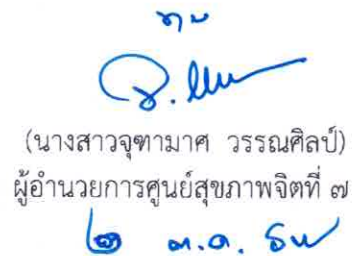 ทราบ
(นางสาวจุฑามาศ วรรณศิลป์)
ผู้อำนวยการศูนย์สุขภาพจิตที่ ๗
๒ ต.ค.